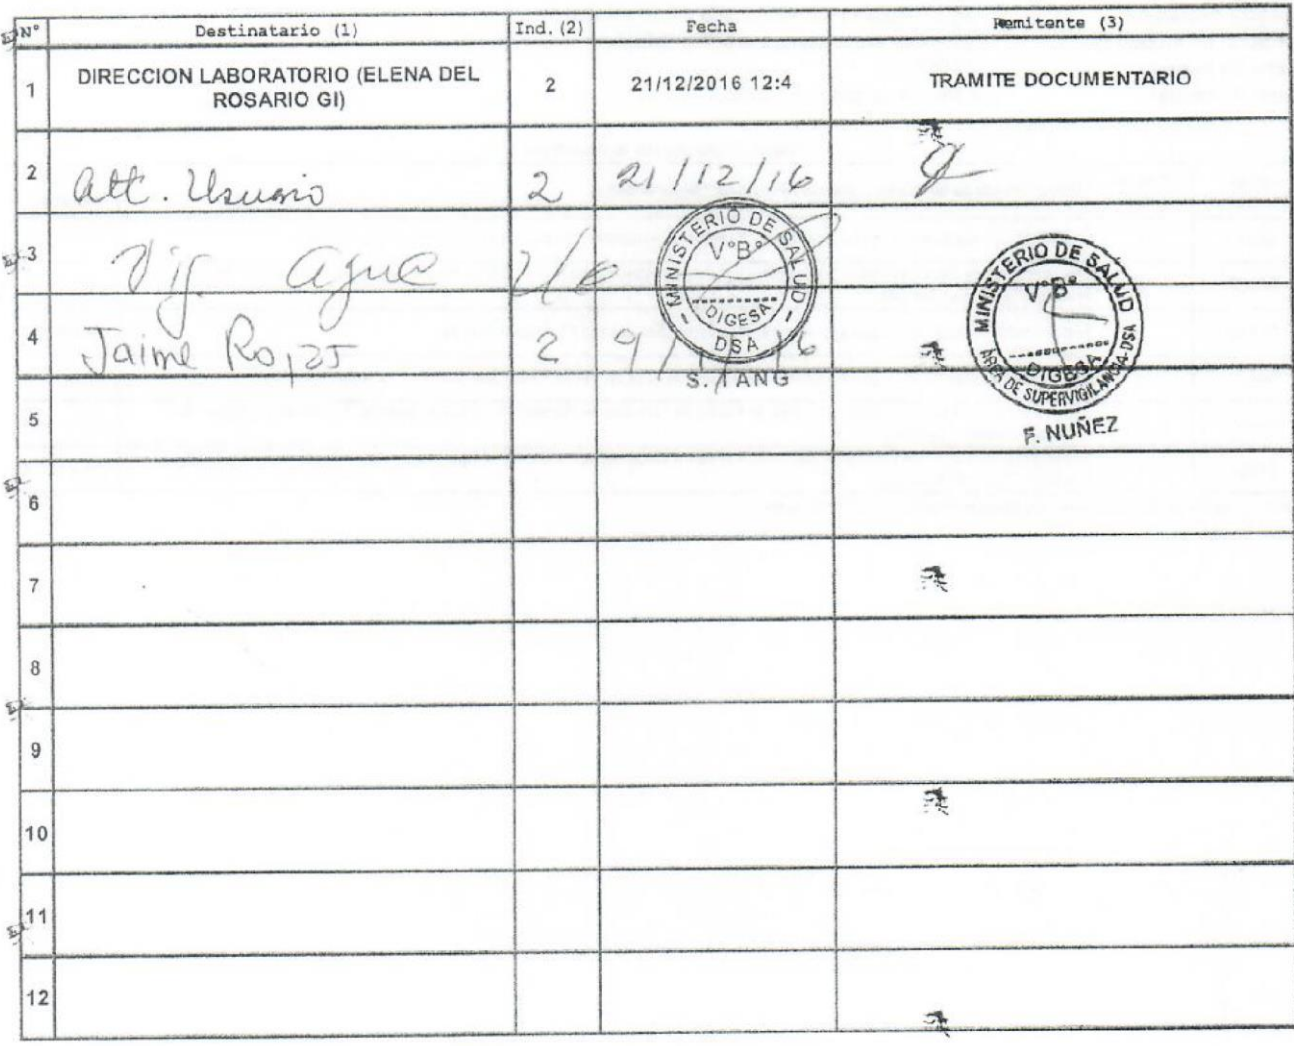 N° Destinatario (1) Ind. (2) Fecha Remitente (3)
1 DIRECCION LABORATORIO (ELENA DEL ROSARIO GI) 2 21/12/2016 12:4 TRAMITE DOCUMENTARIO
2 Att. Usuario 2 21/12/16
3 Vig. agua
MINISTERIO DE SALUD
V°B°
DIGESA
DSA
S. TANG
MINISTERIO DE SALUD
V°B°
DIGESA
AREA DE SUPERVIGILANCIA-DSA
F. NUÑEZ
4 Jaime 2
5
6
7
8
9
10
11
12